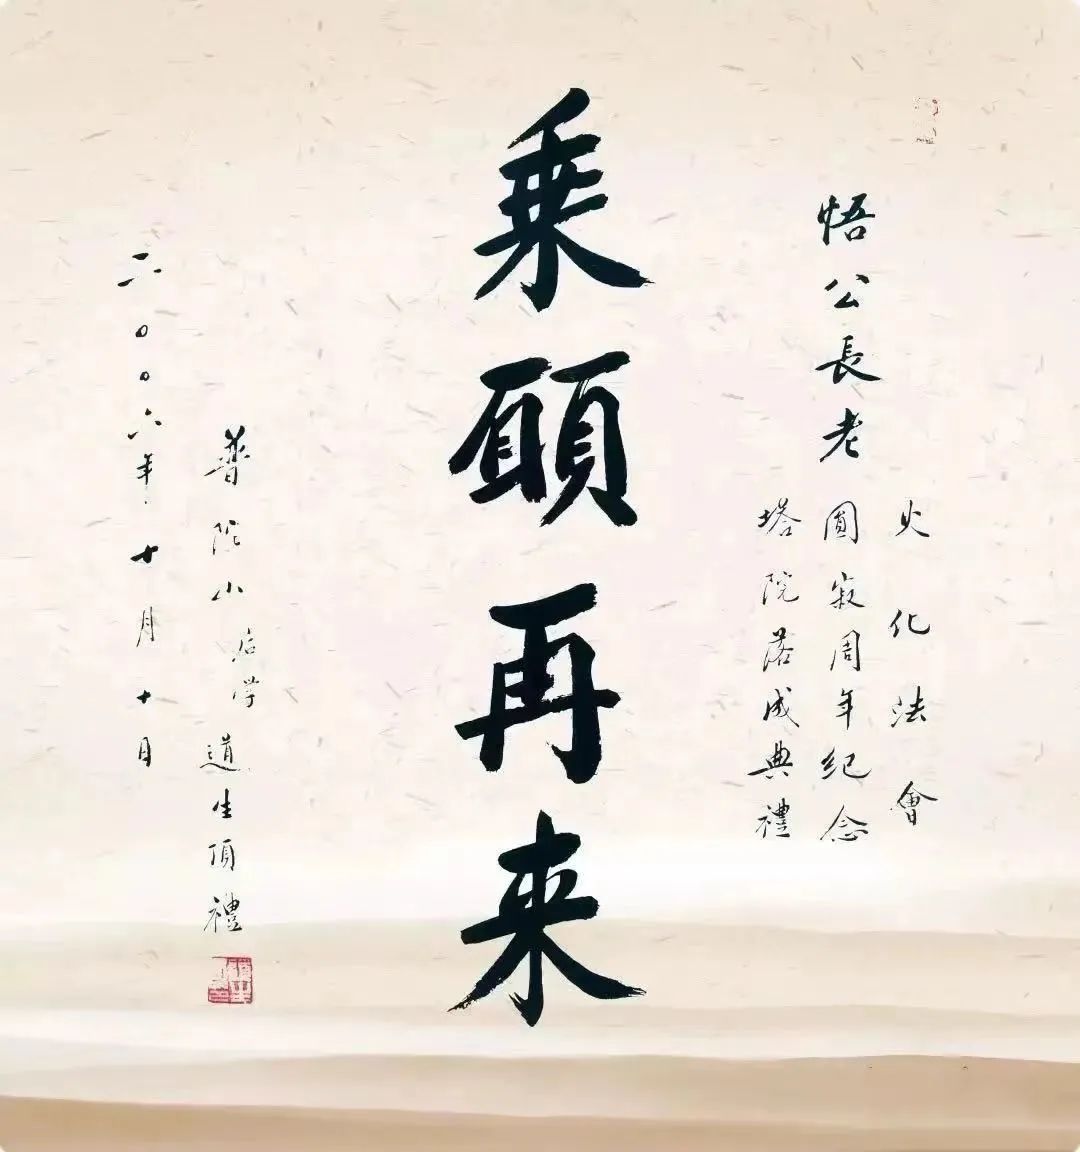 悟公長老
火化法會
圓寂周年紀念
塔院落成典禮
乘願再来
普陀山后学道生頂禮
二〇〇六年十月十日